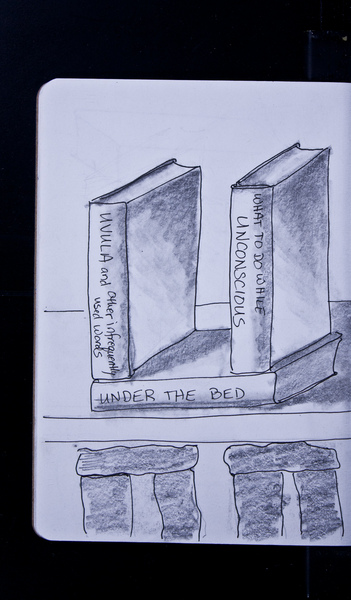 UVULA and other infrequently
used words
WHAT TO DO WHILE
UNCONSCIOUS
UNDER THE BED